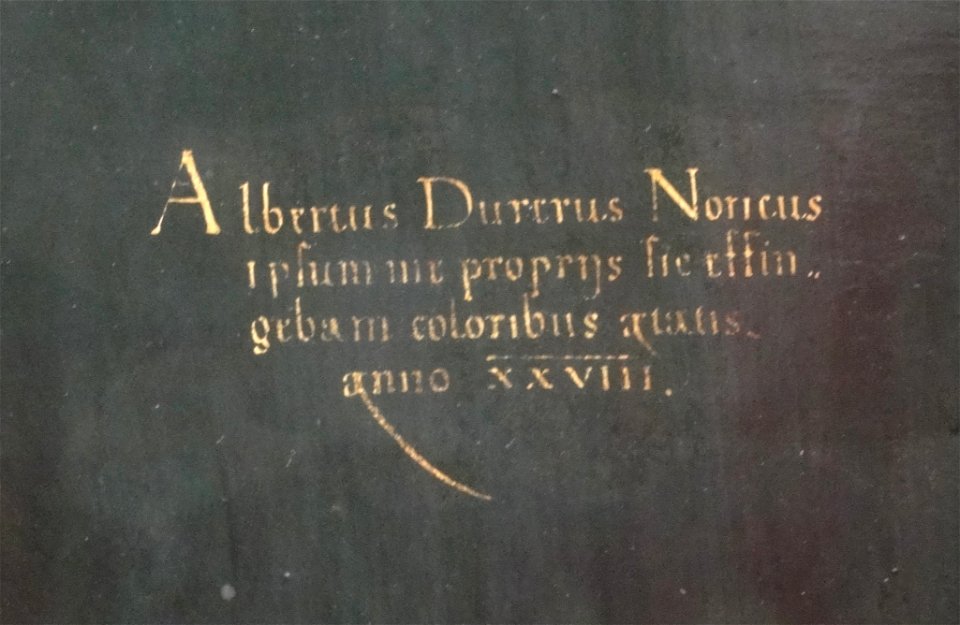 Albertus Durerus Noricus
ipsum me proprijs sic effin„
gebam coloribus ętatis.
anno XXVIII.